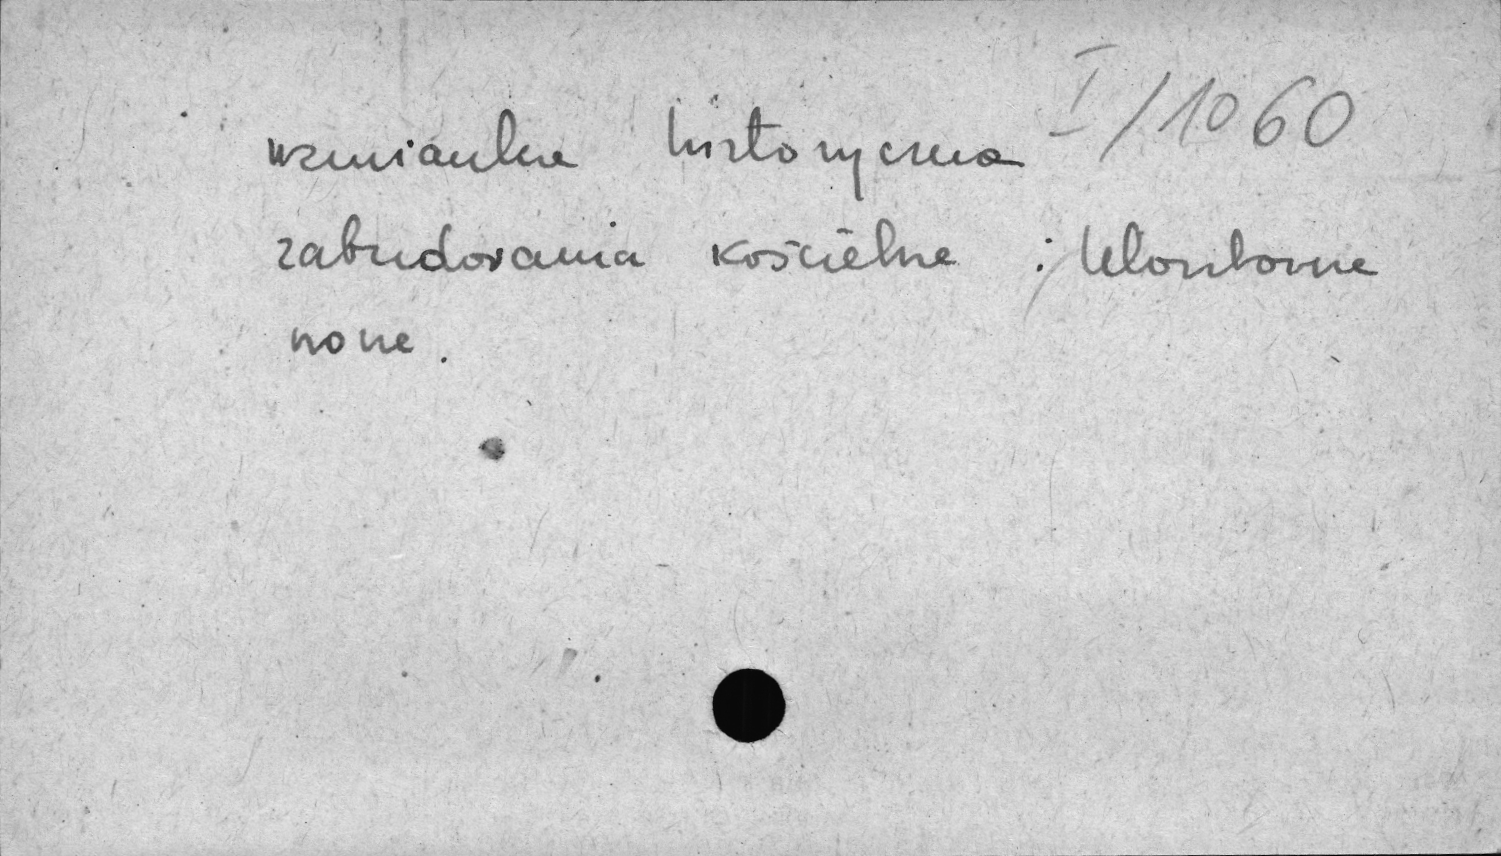 I/1060
wzmianka historyczna
zabudowania kościelne i klasztorne
nowe.